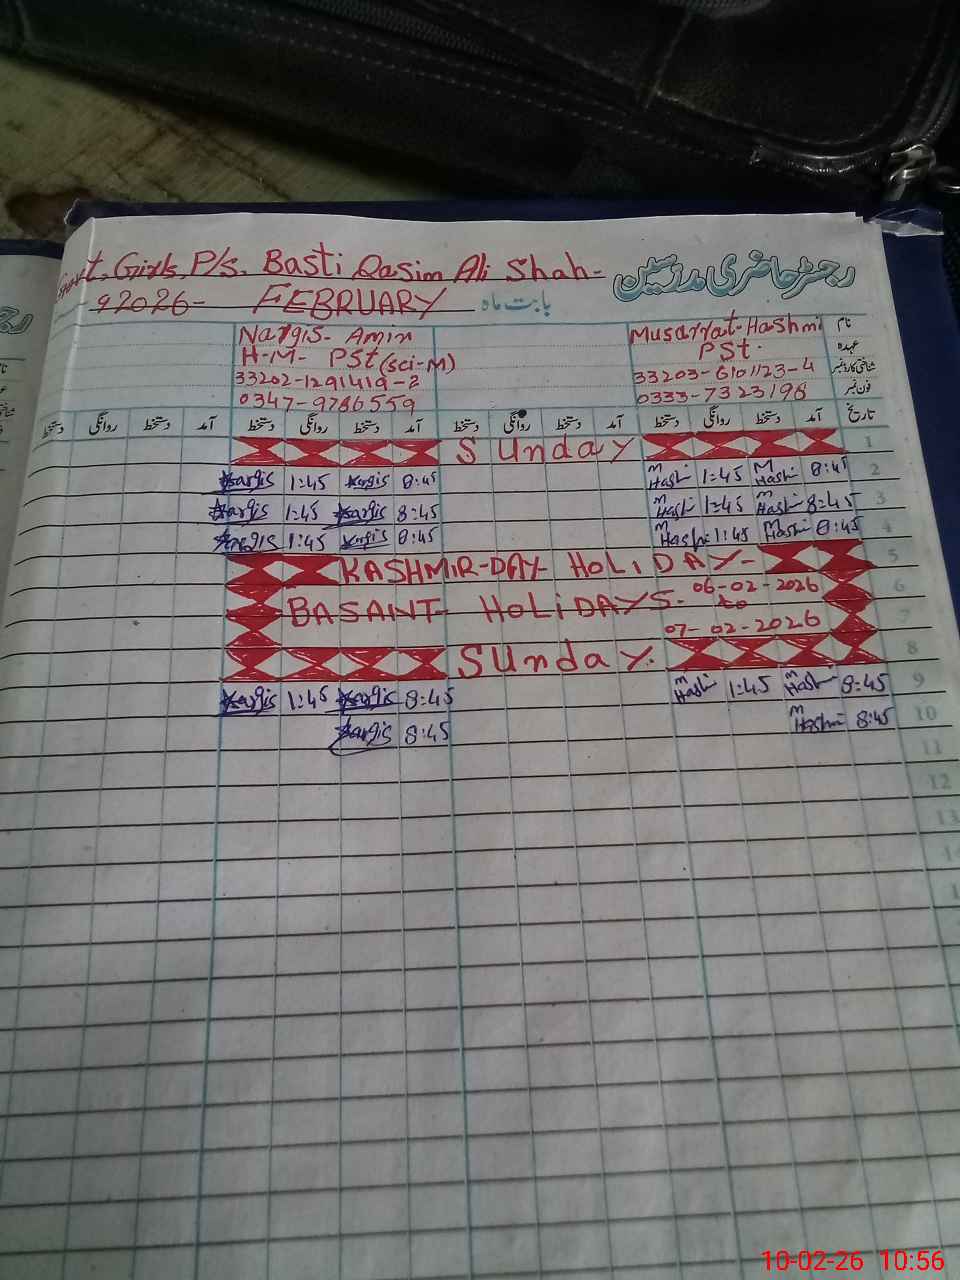 Govt. Girls. P/s. Basti Qasim Ali Shah-
رجسٹر حاضری مدرسین
2026- FEBRUARY بابت ماہ
نام Musarrat-Hashmi Nargis- Amin
عہدہ PSt. H-M- PSt (sci-M)
شناختی کارڈ نمبر 33203-6101123-4 33202-1291419-2
فون نمبر 0333-7323198 0347-9786559
تاریخ آمد دستخط روانگی دستخط آمد دستخط روانگی دستخط آمد دستخط روانگی دستخط آمد دستخط روانگی دستخط
Sunday 1
Nargis 1:45 Nargis 8:45 M Hashi 1:45 M Hashi 8:45 2
Nargis 1:45 Nargis 8:45 M Hashi 1:45 M Hashi 8:45 3
Nargis 1:45 Nargis 8:45 M Hashi 1:45 M Hashi 8:45 4
KASHMIR-DAY HOLIDAY- 5
BASANT- HOLIDAYS. 06-02-2026 6
to
07-02-2026 7
SUnday. 8
Nargis 1:45 Nargis 8:45 M Hashi 1:45 M Hashi 8:45 9
Nargis 8:45 M Hashi 8:45 10
11
12
13
14
10-02-26 10:56